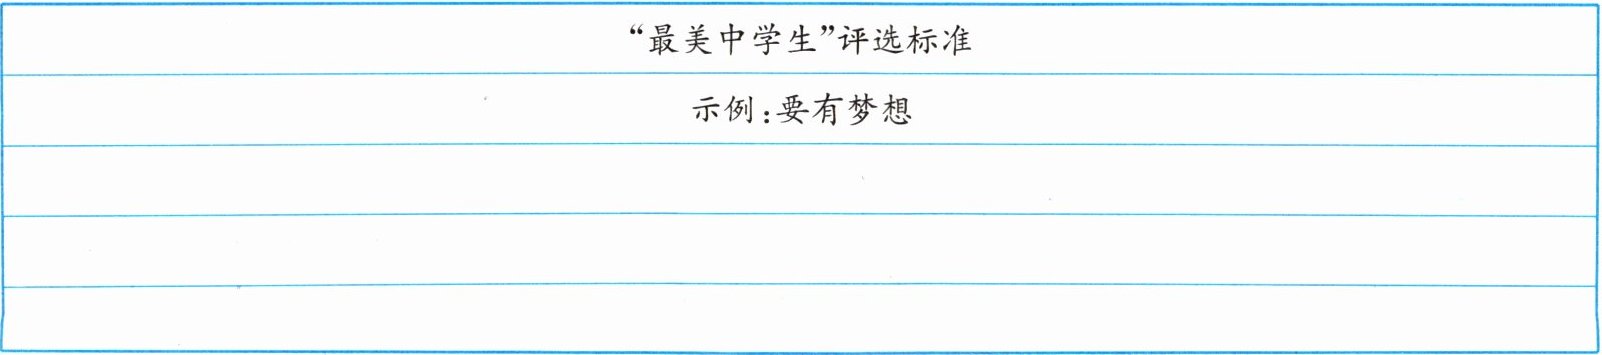 “最美中学生”评选标准
示例:要有梦想